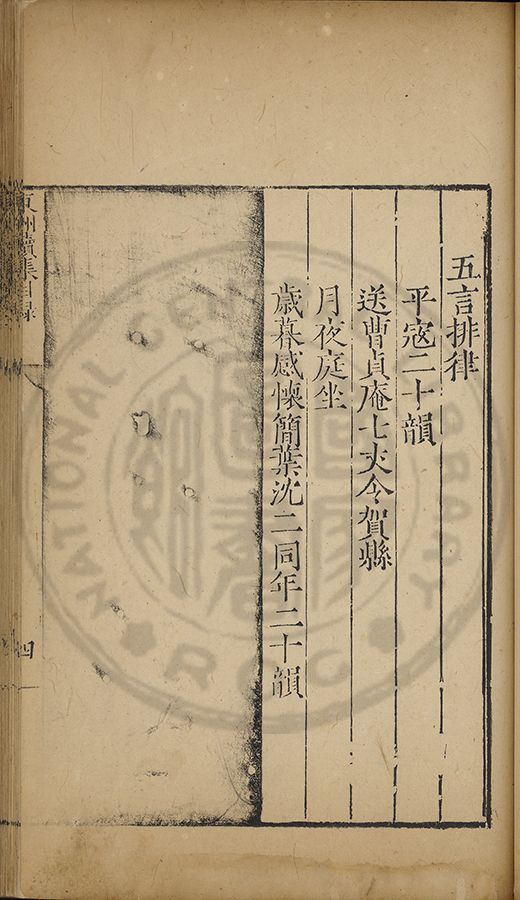 五言排律
平寇二十韻
送曹貞庵七丈令賀縣
月夜庭坐
歲暮感懷簡葉沈二同年二十韻
續集目録
四